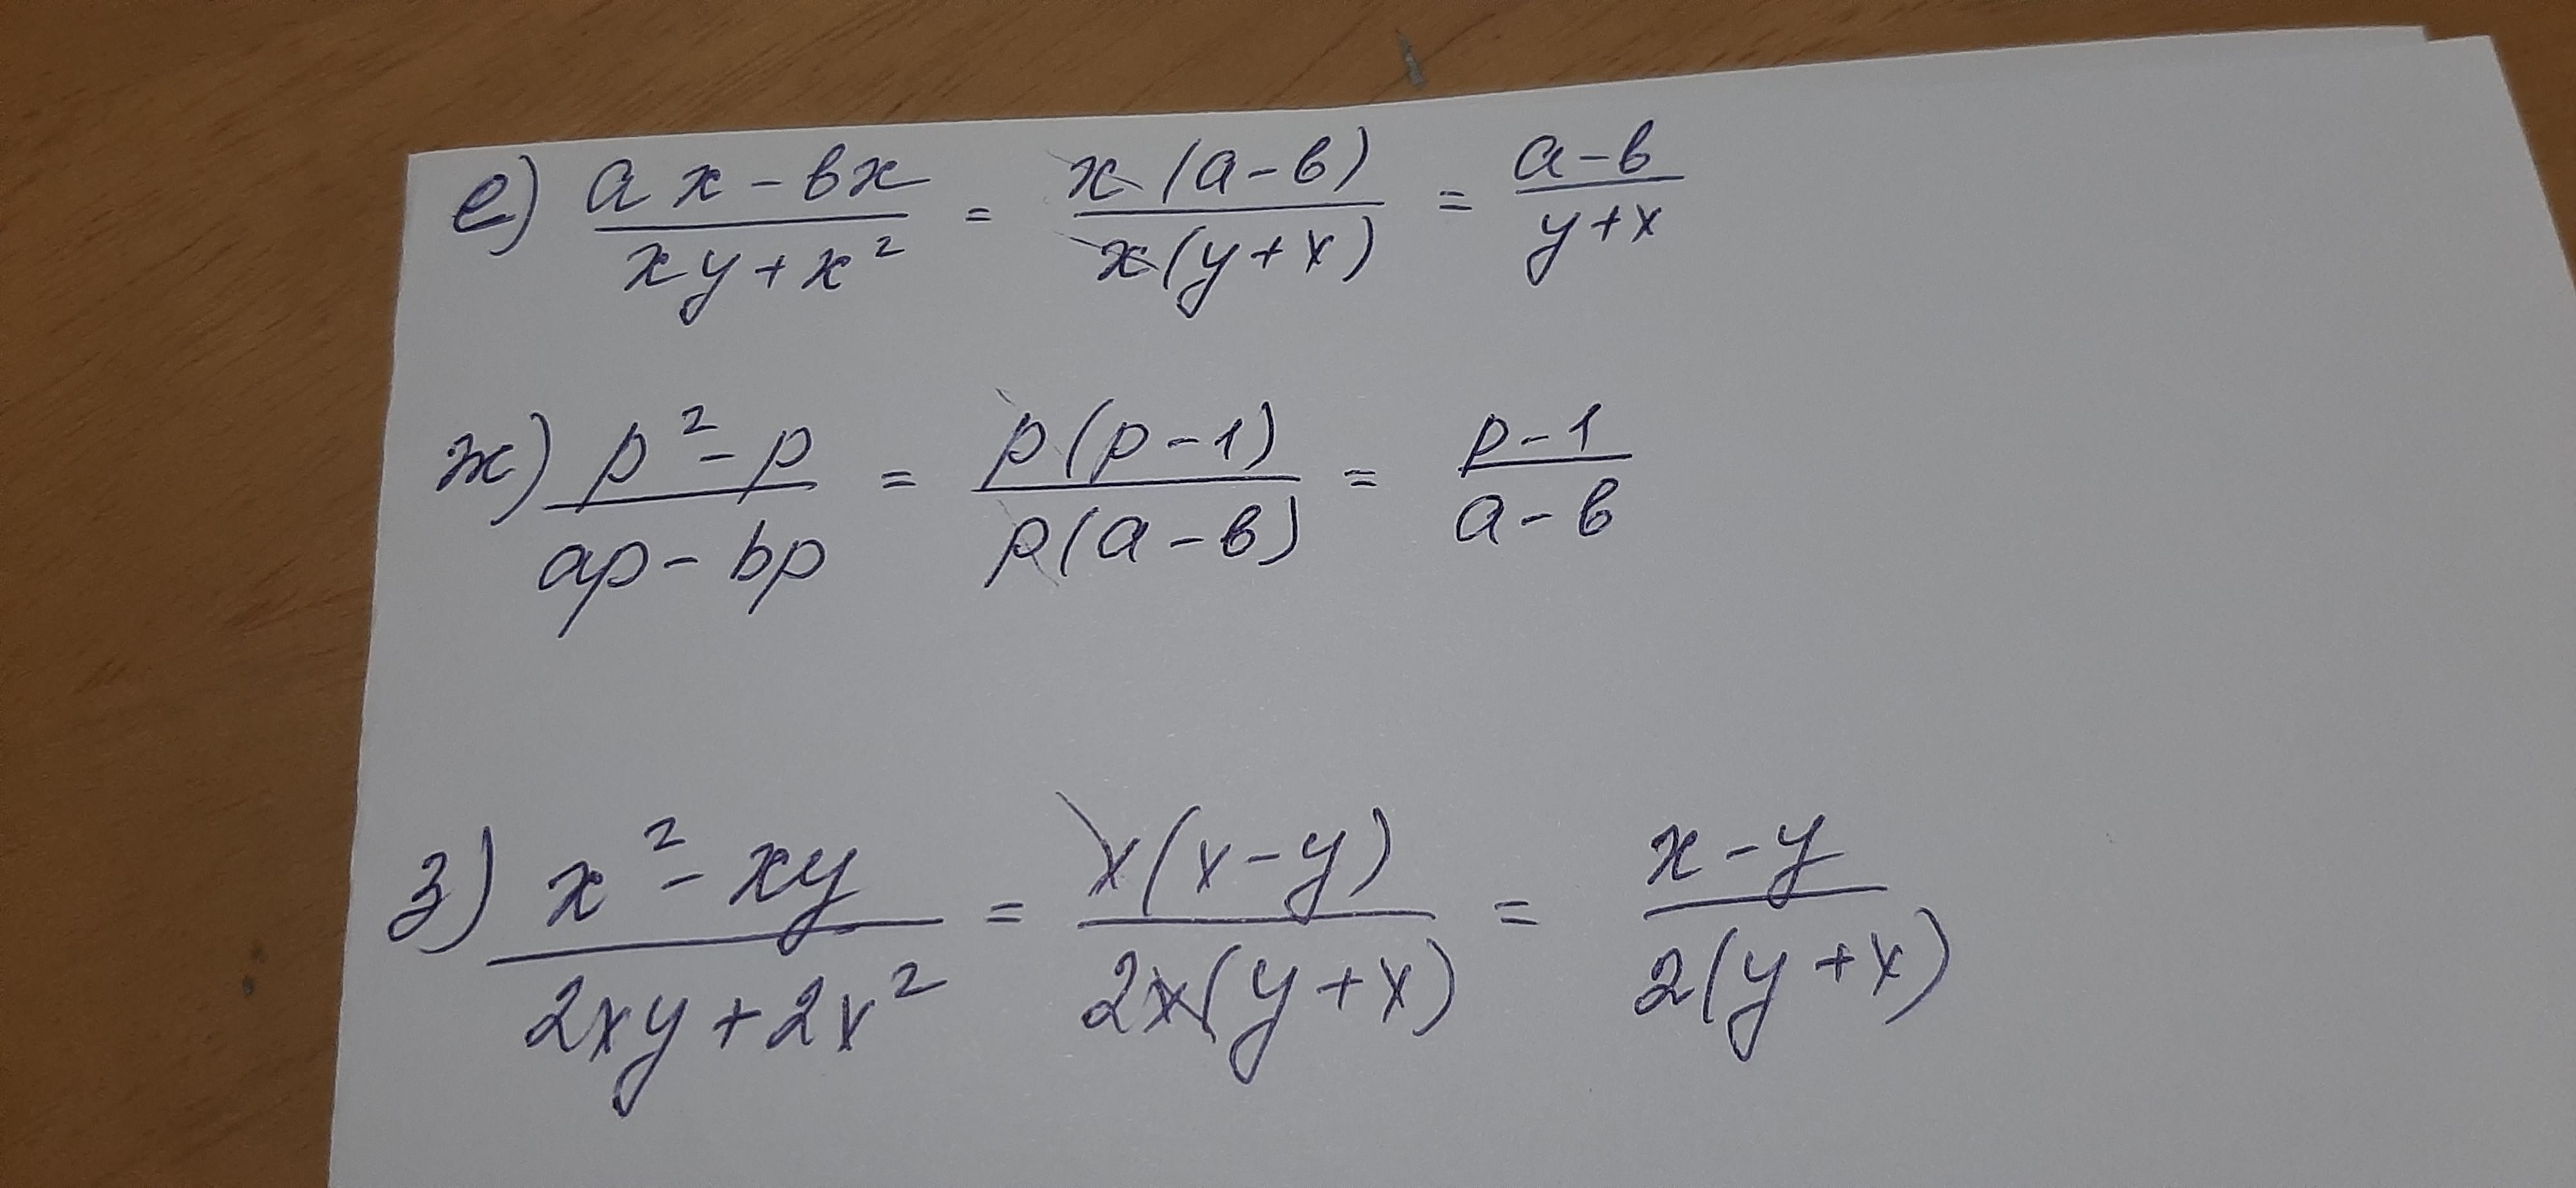 е) (ax - bx)/(xy + x²) = x(a - b)/x(y + x) = (a - b)/(y + x)
ж) (p² - p)/(ap - bp) = p(p - 1)/p(a - b) = (p - 1)/(a - b)
з) (x² - xy)/(2xy + 2x²) = x(x - y)/2x(y + x) = (x - y)/2(y + x)